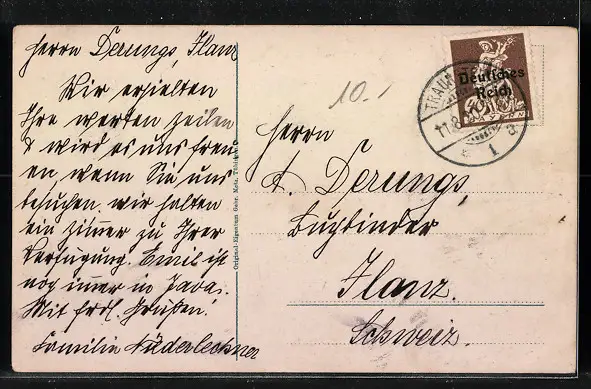 Herrn Derungs, Ilanz
Wir erhielten
Ihre werten Zeilen
& wird es uns freu-
en wenn Sie uns
besuchen. wir halten
ein Zimmer zu Ihrer
Verfügung. Emil ist
nog immer in Java.
Mit frdl. Grüßen!
Familie Niederlechner
Original-Eigentum Gebr. Metz, Tübingen
10.
Deutsches
Reich
TRAU
11.8.
1
Herrn
A. Derungs,
Buchbinder
Ilanz.
Schweiz.